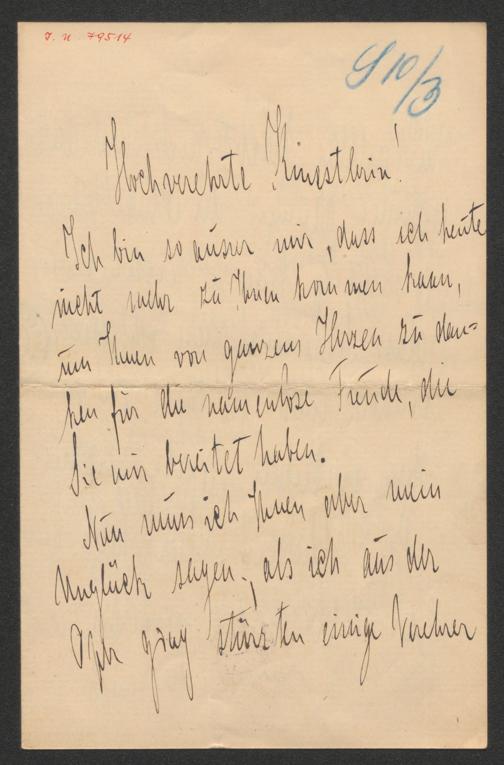 J. N. 79514
S 10/3
Hochverehrte Künstlerin!
Ich bin so ausser mir, dass ich heute
nicht mehr zu Ihnen kommen kann,
um Ihnen von ganzem Herzen zu dan=
ken für die namenlose Freude, die
Sie mir bereitet haben.
Nun muss ich Ihnen aber mein
Unglück sagen; als ich aus der
Oper ging stürzten einige Verehrer